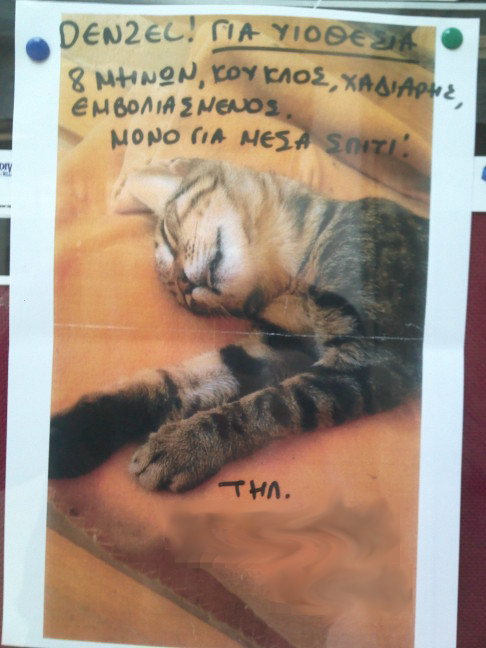 DENZEL! ΓΙΑ ΥΙΟΘΕΣΙΑ
8 ΜΗΝΩΝ, ΚΟΥΚΛΟΣ, ΧΑΔΙΑΡΗΣ,
ΕΜΒΟΛΙΑΣΜΕΝΟΣ.
ΜΟΝΟ ΓΙΑ ΜΕΣΑ ΣΠΙΤΙ!
ΤΗΛ.